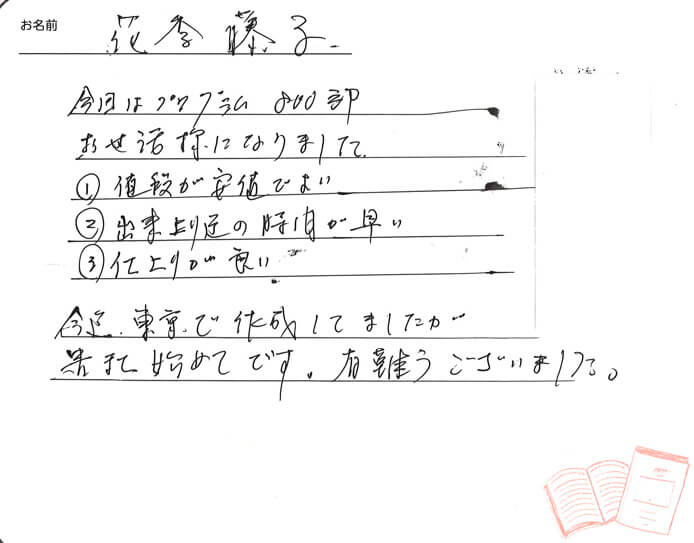 お名前 花季藤子
今回はプログラム 800部
お世話様になりました
① 値段が安値でよい
② 出来上り迄の時間が早い
③ 仕上りが良い
今迄、東京で作成してましたが
始めてです。有難うございました。